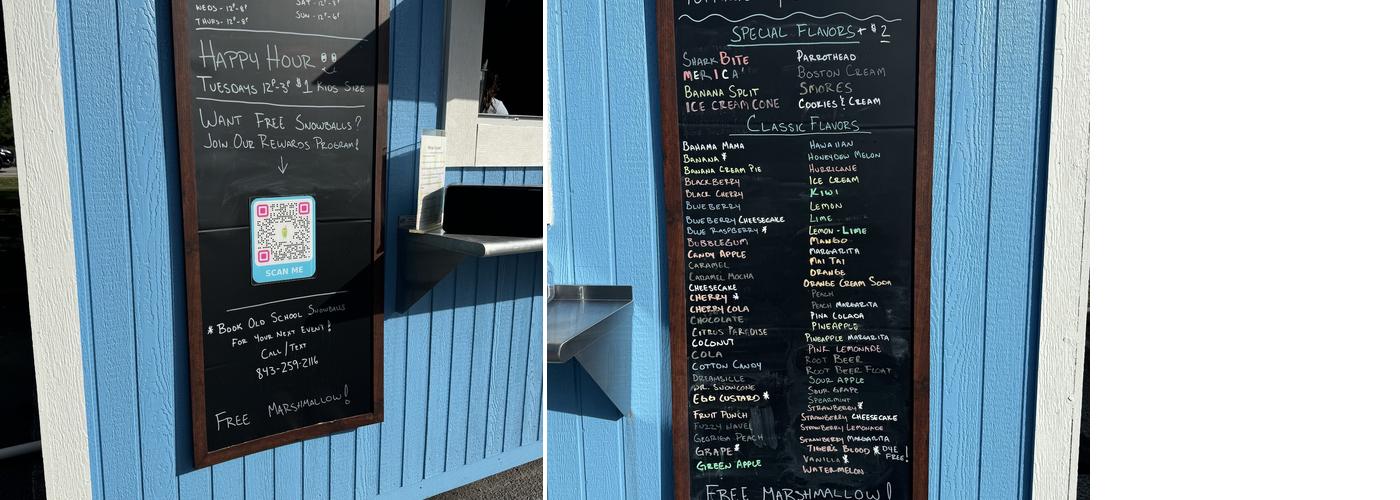 WEDS - 12P-8P
THURS - 12P-8P
SAT - 12P-8P
SUN - 12P-6P
HAPPY HOUR
TUESDAYS 12P-3P $1 KIDS SIZE
WANT FREE SNOWBALLS?
JOIN OUR REWARDS PROGRAM!
SCAN ME
* BOOK OLD SCHOOL SNOWBALLS
FOR YOUR NEXT EVENT!
CALL/TEXT
843-259-2116
FREE MARSHMALLOW!
SPECIAL FLAVORS + $2
SHARK BITE
MERICA'
BANANA SPLIT
ICE CREAM CONE
PARROTHEAD
BOSTON CREAM
SMORES
COOKIES & CREAM
CLASSIC FLAVORS
BAHAMA MAMA
BANANA *
BANANA CREAM PIE
BLACKBERRY
BLACK CHERRY
BLUEBERRY
BLUEBERRY CHEESECAKE
BLUE RASPBERRY *
BUBBLEGUM
CANDY APPLE
CARAMEL
CARAMEL MOCHA
CHEESECAKE
CHERRY *
CHERRY COLA
CHOCOLATE
CITRUS PARADISE
COCONUT
COLA
COTTON CANDY
DREAMSICLE
DR. SNOWCONE
EGG CUSTARD *
FRUIT PUNCH
FUZZY NAVEL
GEORIGA PEACH
GRAPE *
GREEN APPLE
HAWAIIAN
HONEYDEW MELON
HURRICANE
ICE CREAM
KIWI
LEMON
LIME
LEMON-LIME
MANGO
MARGARITA
MAI TAI
ORANGE
ORANGE CREAM SODA
PEACH
PEACH MARGARITA
PINA COLADA
PINEAPPLE
PINEAPPLE MARGARITA
PINK LEMONADE
ROOT BEER
ROOT BEER FLOAT
SOUR APPLE
SOUR GRAPE
SPEARMINT
STRAWBERRY *
STRAWBERRY CHEESECAKE
STRAWBERRY LEMONADE
STRAWBERRY MARGARITA
TIGER'S BLOOD
VANILLA *
WATERMELON
* DYE FREE!
FREE MARSHMALLOW!